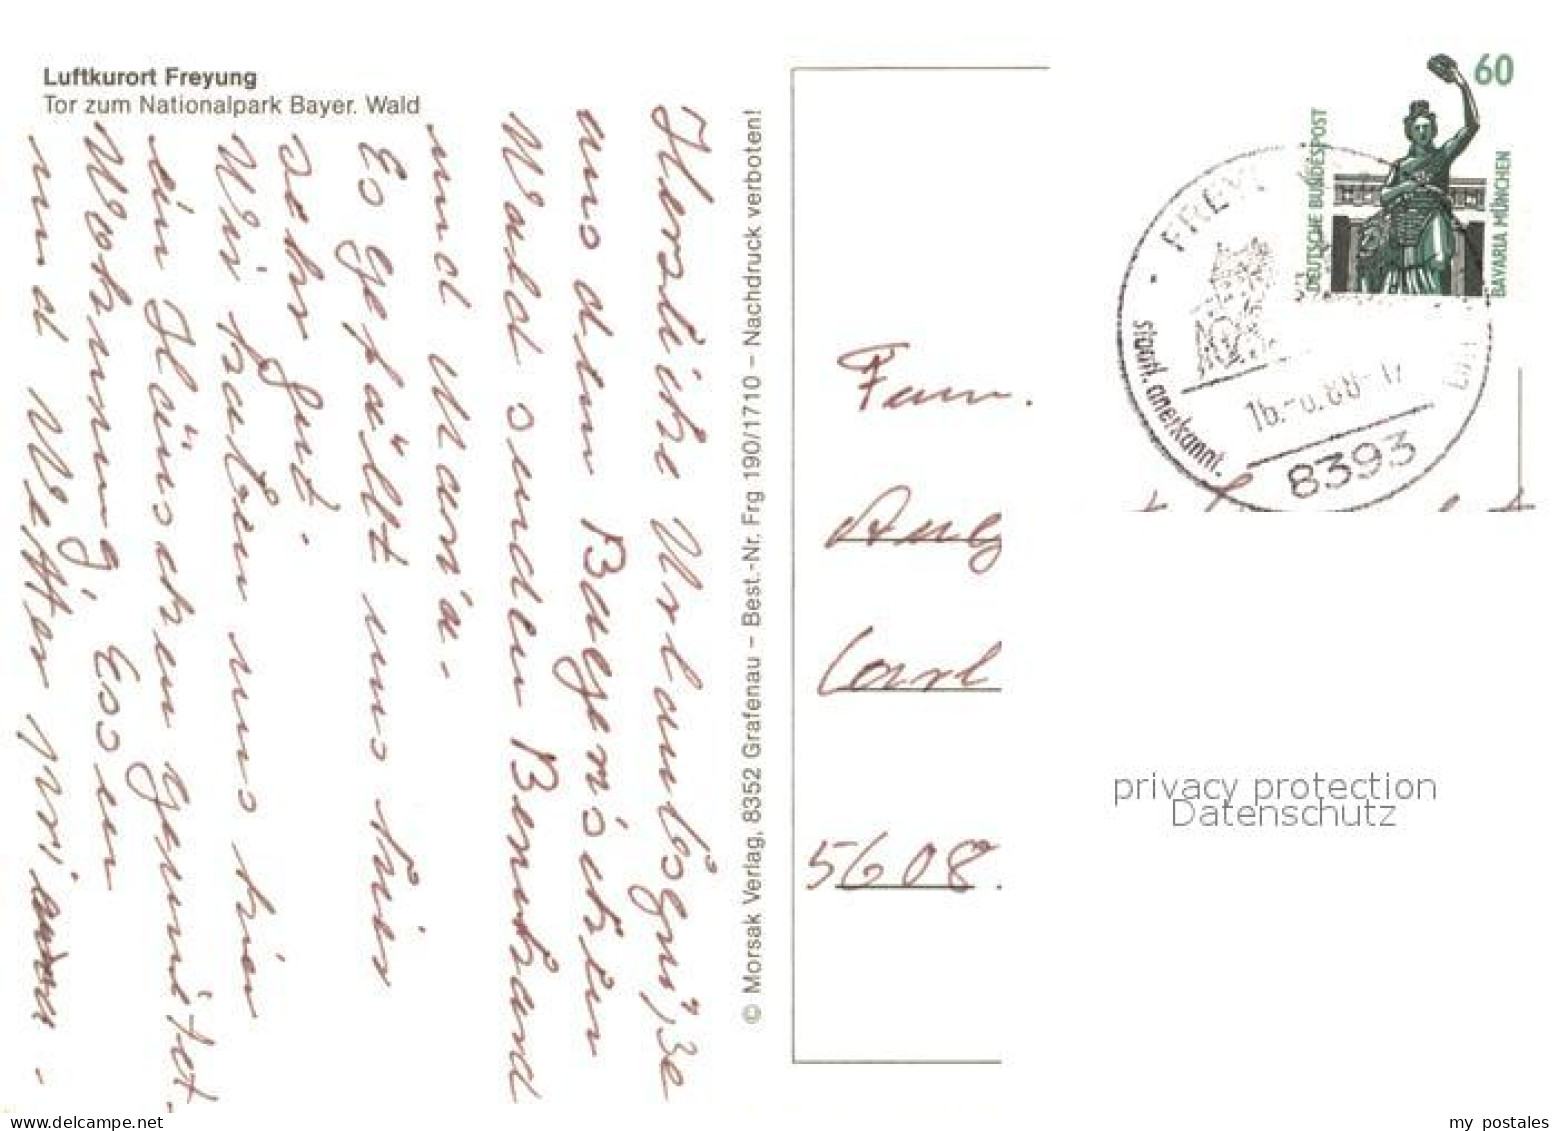 Luftkurort Freyung
Tor zum Nationalpark Bayer. Wald
Herzliche Urlaubsgrüße
aus dem Bayerischen
Wald senden Bernhard
und Maria.
Es gefällt uns hier
sehr gut.
Wir haben uns hier
ein Häuschen gemietet.
Wohnung, Essen
und Wetter prima.
© Morsak Verlag, 8352 Grafenau – Best.-Nr. Frg 190/1710 – Nachdruck verboten!
60
DEUTSCHE BUNDESPOST
BAVARIA MÜNCHEN
FREYU
staatl. anerkannt.
8393
Fam.
Carl
5608.
privacy protection
Datenschutz
www.delcampe.net
my_postales